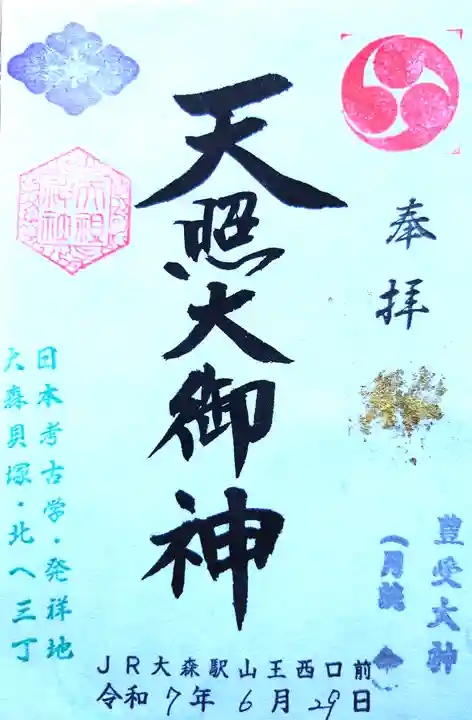 奉拝
豊受大神
天照大御神
大祖神社
日本考古学・発祥地
大森貝塚・北へ三丁
JR大森駅山王西口前
令和7年6月29日